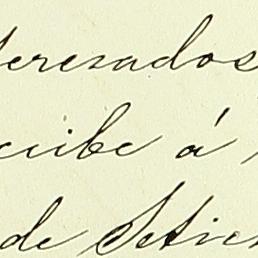 teresados
cribe á
de Setiem